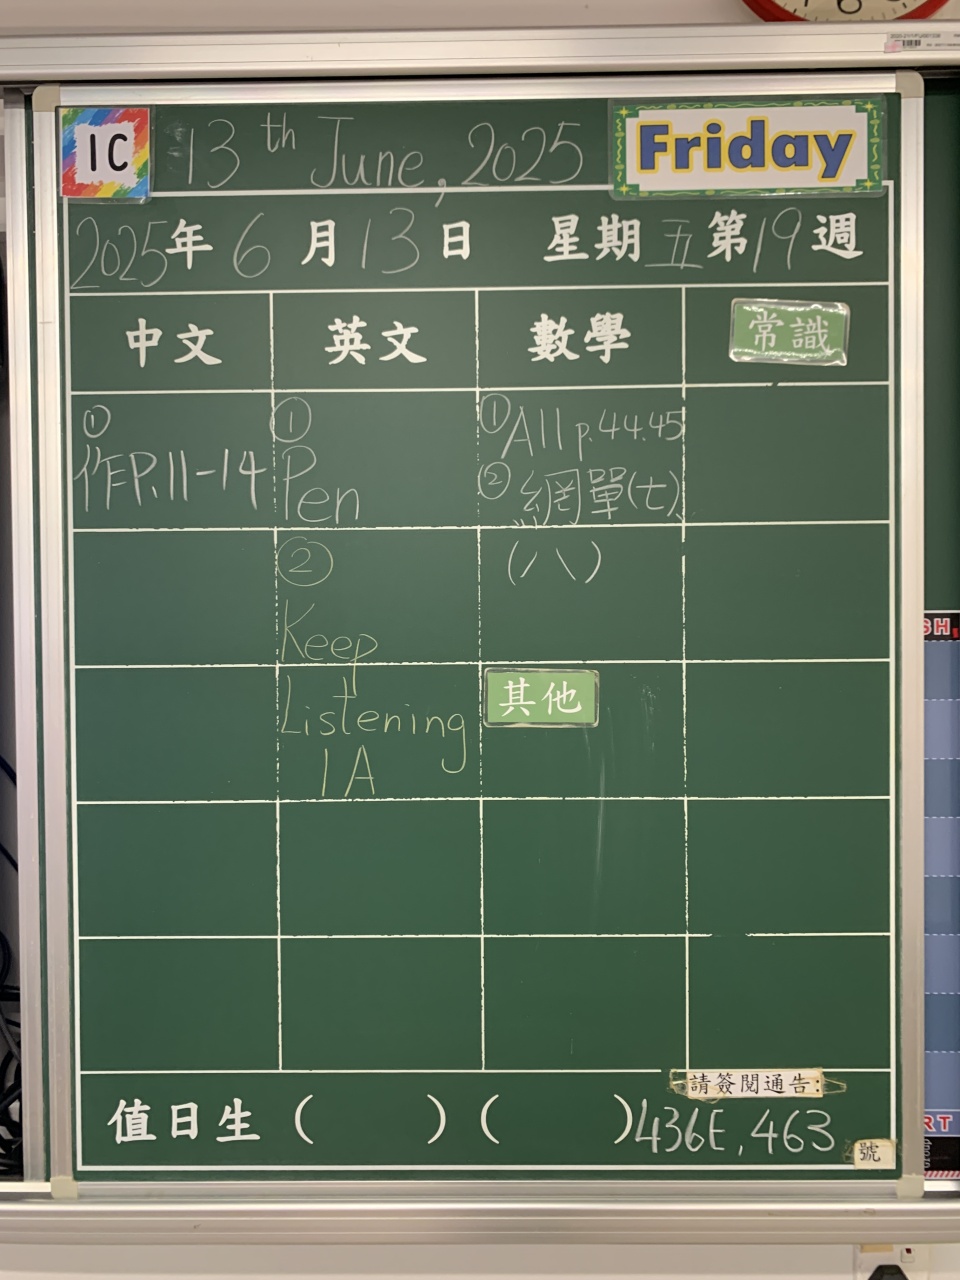 1C 13th June, 2025 Friday
2025年6月13日 星期五第19週
中文 英文 數學 常識
①
作P.11-14
①
Pen
②
Keep
Listening
1A
① All p.44.45
② 網單(七)
(八)
其他
值日生( )( )
請簽閱通告:
436E, 463
號
SH,
RT